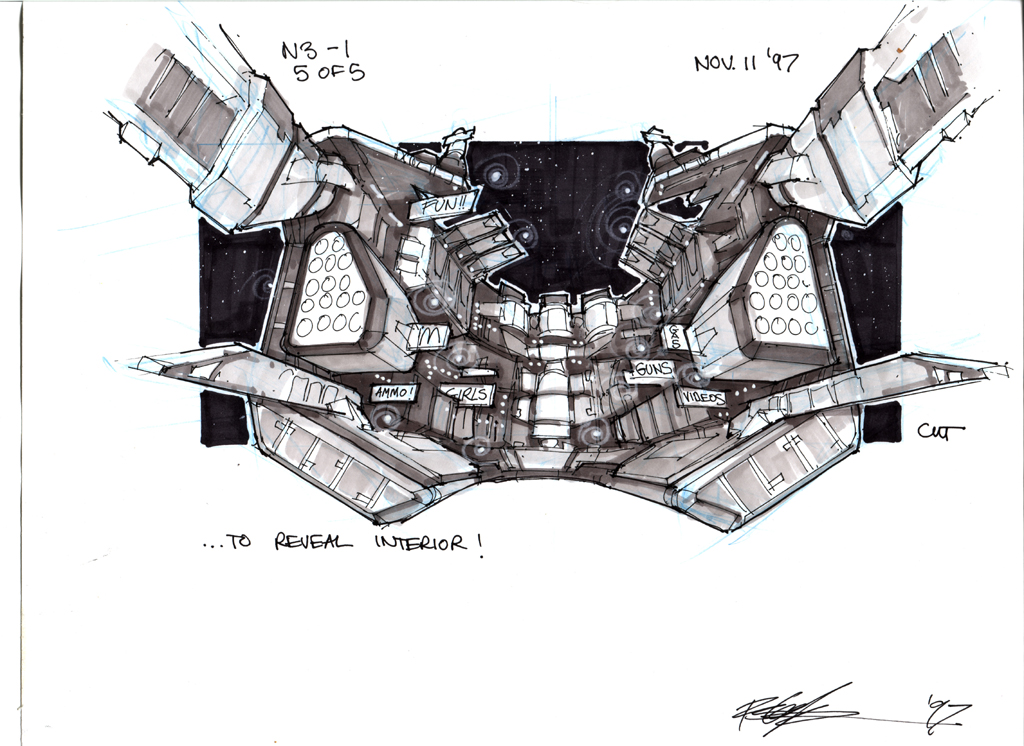 N3-1
5 OF 5
NOV. 11 '97
FUN!!
M
GAS
GUNS
AMMO!
GIRLS
VIDEOS
CUT
...TO REVEAL INTERIOR!
'97